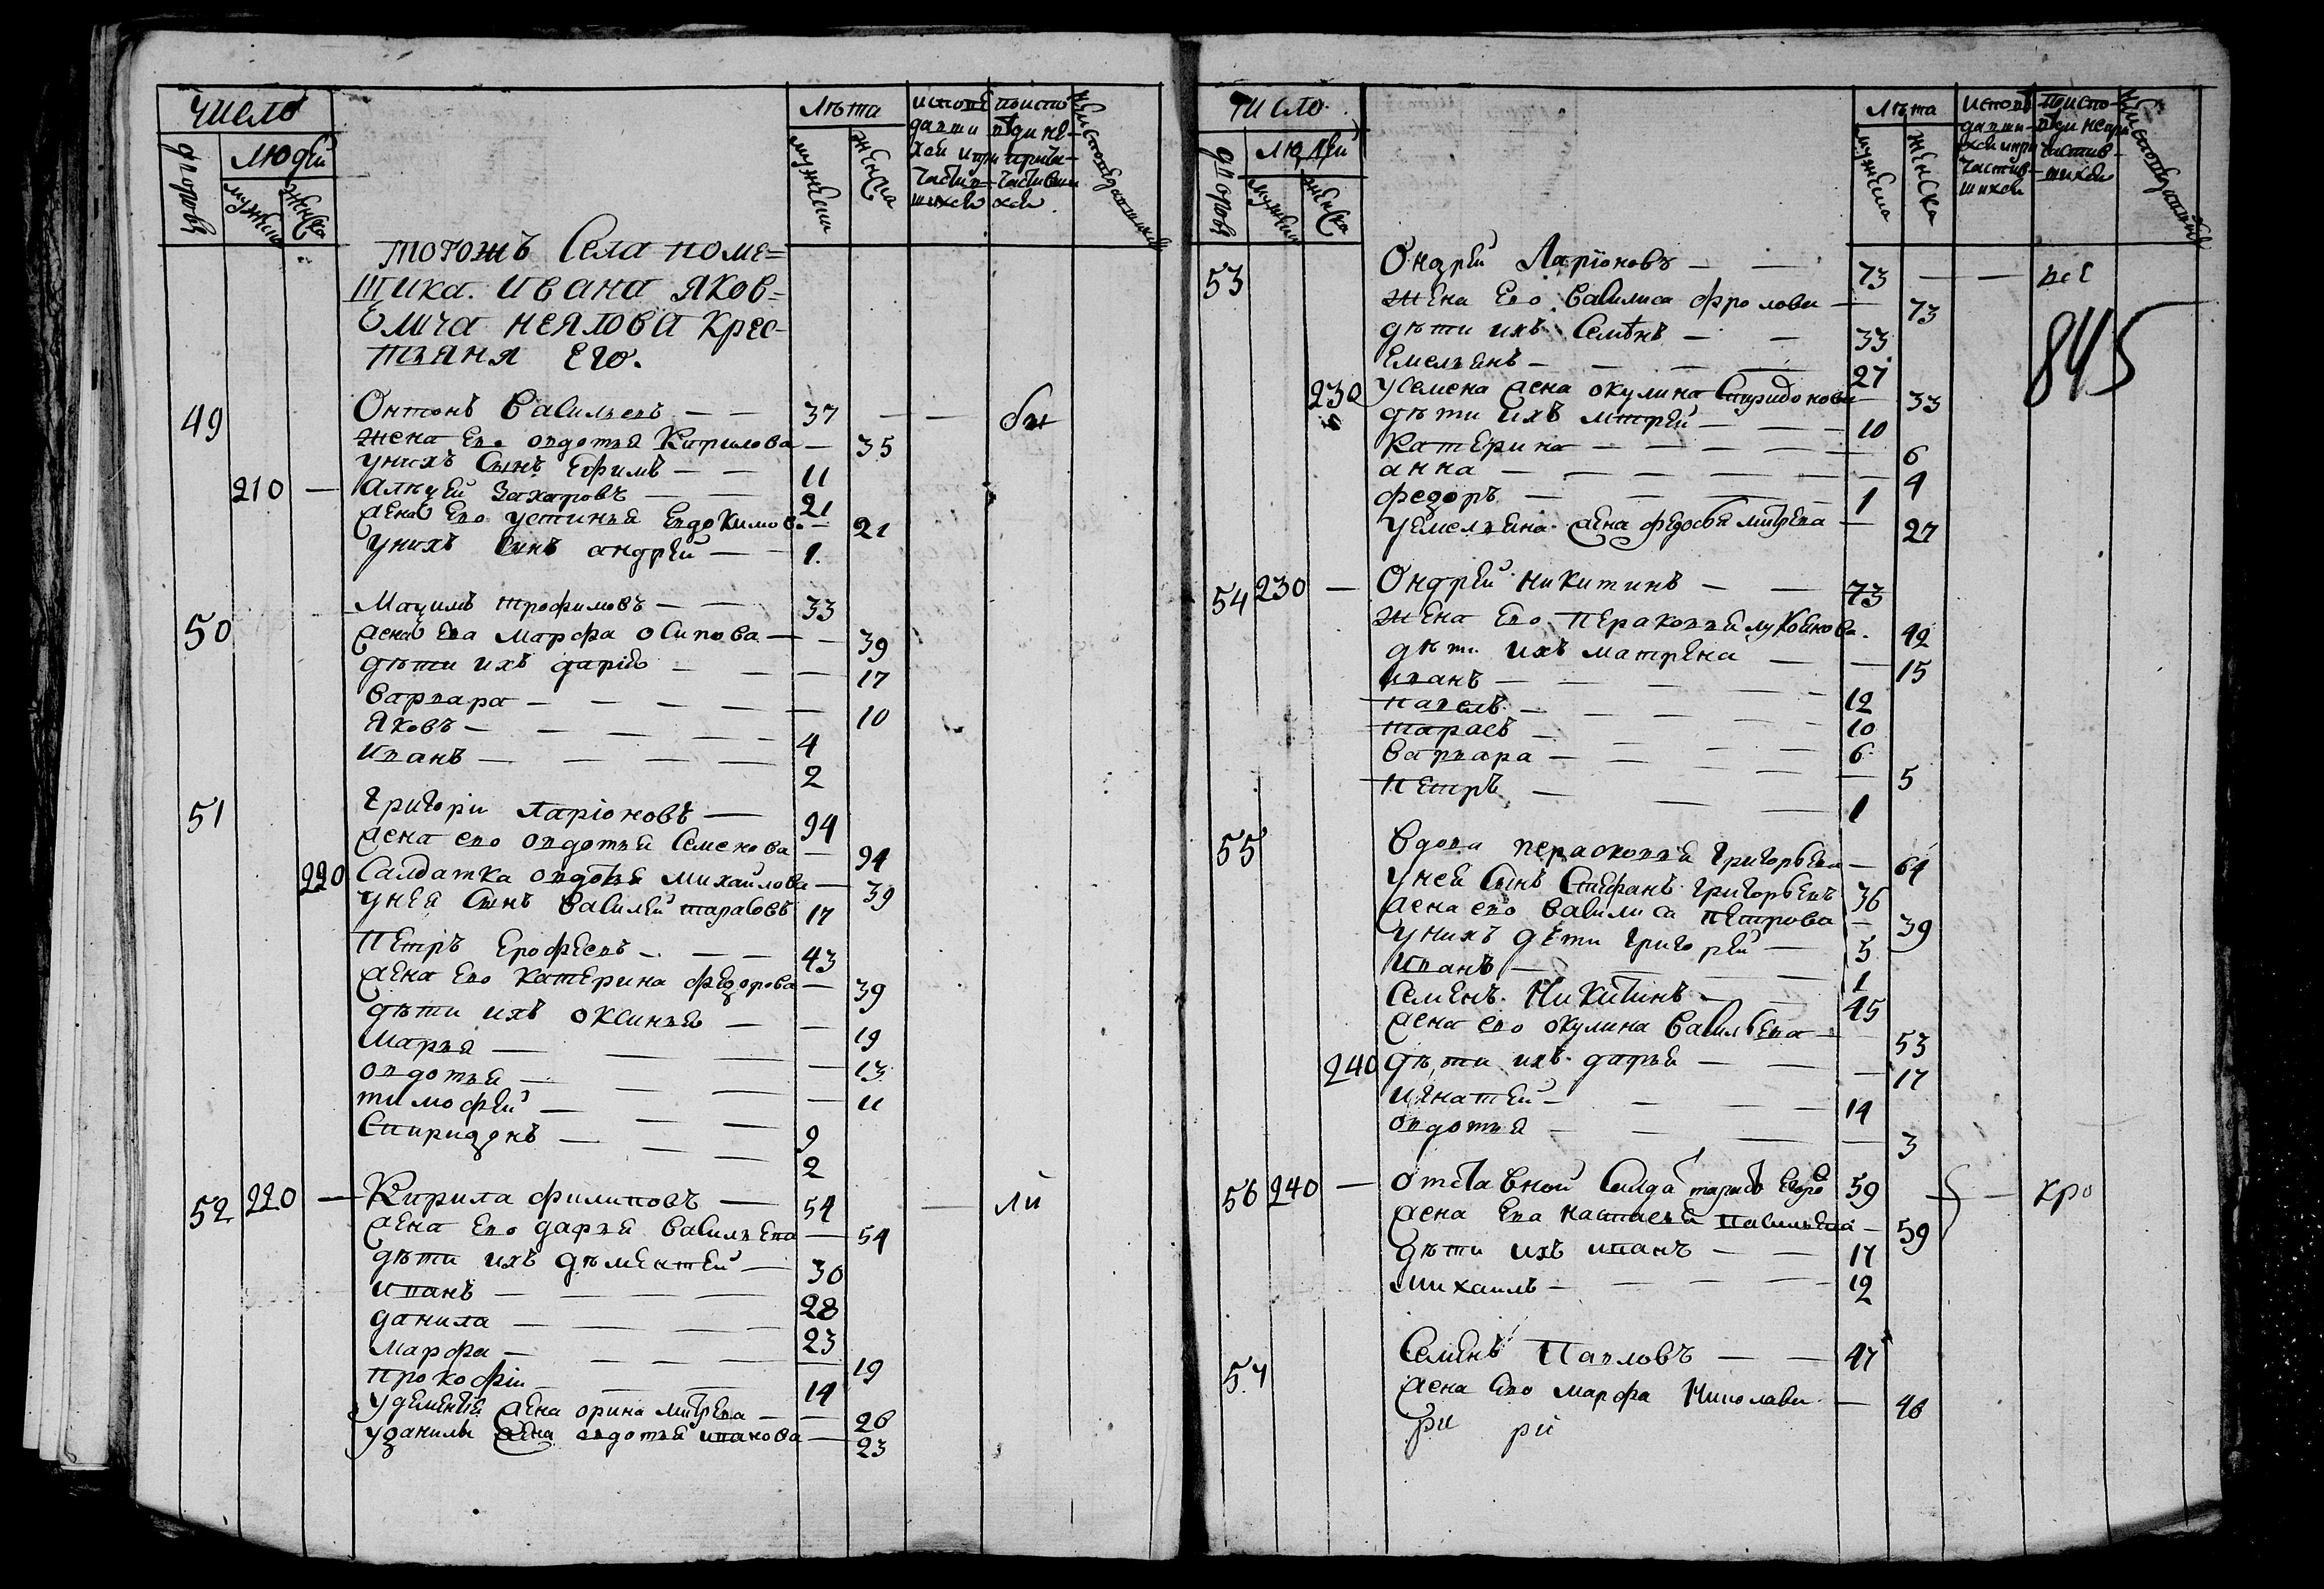 число
дворовъ
людей
мужеска
женска
лѣта
мужеска
женска
исповѣ
давши
хся и при
частив
шихся
тогожъ Села поме=
щика. Ивана Яков=
влича неялова Крес-
тьяня его.
49
Онтонъ Васильевъ — — 37 — — бы
жена Ево овдотья Кирилова — 35
унихъ Сынъ Ефимъ — — 11
210 — алѣѯей Захаровъ — — 21
жена Ево устинья Евдокимова — 21
унихъ Сынъ андрей — — 1.
50
Маѯимъ трофимовъ — — 33
жена Ева Марфа осипова — — 39
дѣти ихъ дарья — — — 17
Варвара — — — — — 10
Яковъ — — — — — 4
Иванъ — — — — 2
51
Григори Ларіоновъ — 94
жена ево овдотья Семенова — 94
220 Салдатка овдотья Михаилова — 39
унея Сынъ Василей тарасовъ 17
Петръ Ерофеевъ — — — 43
жена Ево Катерина федорова — 39
дѣти ихъ оксинья — — 19
Марья — — — — 13
овдотья — — — — 11
тимофей — — — 9
Спиридонъ — — — 2
52 220 — Кирила филиповъ — 54 — ли
жена Ево дарья Васильева — 54
дѣти ихъ дѣментей — 30
Иванъ — — — — 28
данила — — — — 23
Марфа — — — — — 19
Прокофіи — — — 14
удементья жена орина митрева — — 26
уданилы жена овдотья иванова — 23
число.
дворовъ
людей
мужеска
женска
лѣта
мужеска
женска
исповѣ
давши-
хся и при
частив-
шихся
53
Ондрей Ларіоновъ — — 73 — — всѣ
жена Ево Василиса фролова — 73
845
дѣти ихъ Семѣнъ — — 33
Емельянъ — — — — 27
230 усемена жена окулина Спиридонова — 33
дѣти ихъ митрей — — — 10
Катерина — — — — — 6
анна — — — — — — 4
федоръ — — — — 1
уемельяна жена федосья митрева — 27
54 230 — Ондрей Никитинъ — — 73
жена Ево Пераковья лукоянова. 42
дѣти ихъ матрена — — 15
Иванъ — — — — 12
Павелъ — — — — 10
тарасъ — — — — 6
Варвара — — — — — 5
Петръ — — — 1
55
Вдова перасковья Григорьева — 64
унея Сынъ Стефанъ Григорьевъ 36
жена ево Василиса Петрова — 39
унихъ дѣти Григорей — 5
Иванъ — — — — 1
Семенъ Никитинъ — — 45
жена ево окулина Васильева — 53
240 дѣти ихъ дарья — — — 17
Игнатей — — — 14
овдотья — — — — 3
56 240 — отставной Салда тарасъ 59 — — кро
жена Ева Настасья Васильева — 59
дѣти ихъ иванъ — — 17
михаилъ — — — — 12
57
Семенъ Павловъ — — 47
жена Ево марфа Николаева — 46
ри ри